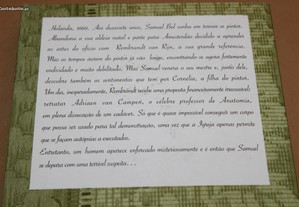 CustoJusto.pt
Holanda, 1656. Aos dezasseis anos, Samuel Bol sonha em tornar-se pintor.
Abandona a sua aldeia natal e parte para Amesterdão decidido a aprender
as artes do ofício com Rembrandt van Rijn, a sua grande referência.
Mas os tempos áureos do pintor já vão longe, encontrando-se agora fortemente
endividado e muito debilitado. Mas Samuel venera o seu mestre e, junto dele,
descobre também os sentimentos que tem por Cornelia, a filha do pintor.
Um dia, inesperadamente, Rembrandt recebe uma proposta financeiramente irresistível:
retratar Adrian van Campen, o célebre professor de Anatomia,
em plena dissecação de um cadáver. Só que é quase impossível conseguir um corpo
que possa ser usado para tal demonstração, uma vez que a Igreja apenas permite
que se façam autópsias a executados.
Entretanto, um homem aparece enforcado misteriosamente e é então que Samuel
se depara com uma terrível suspeita...